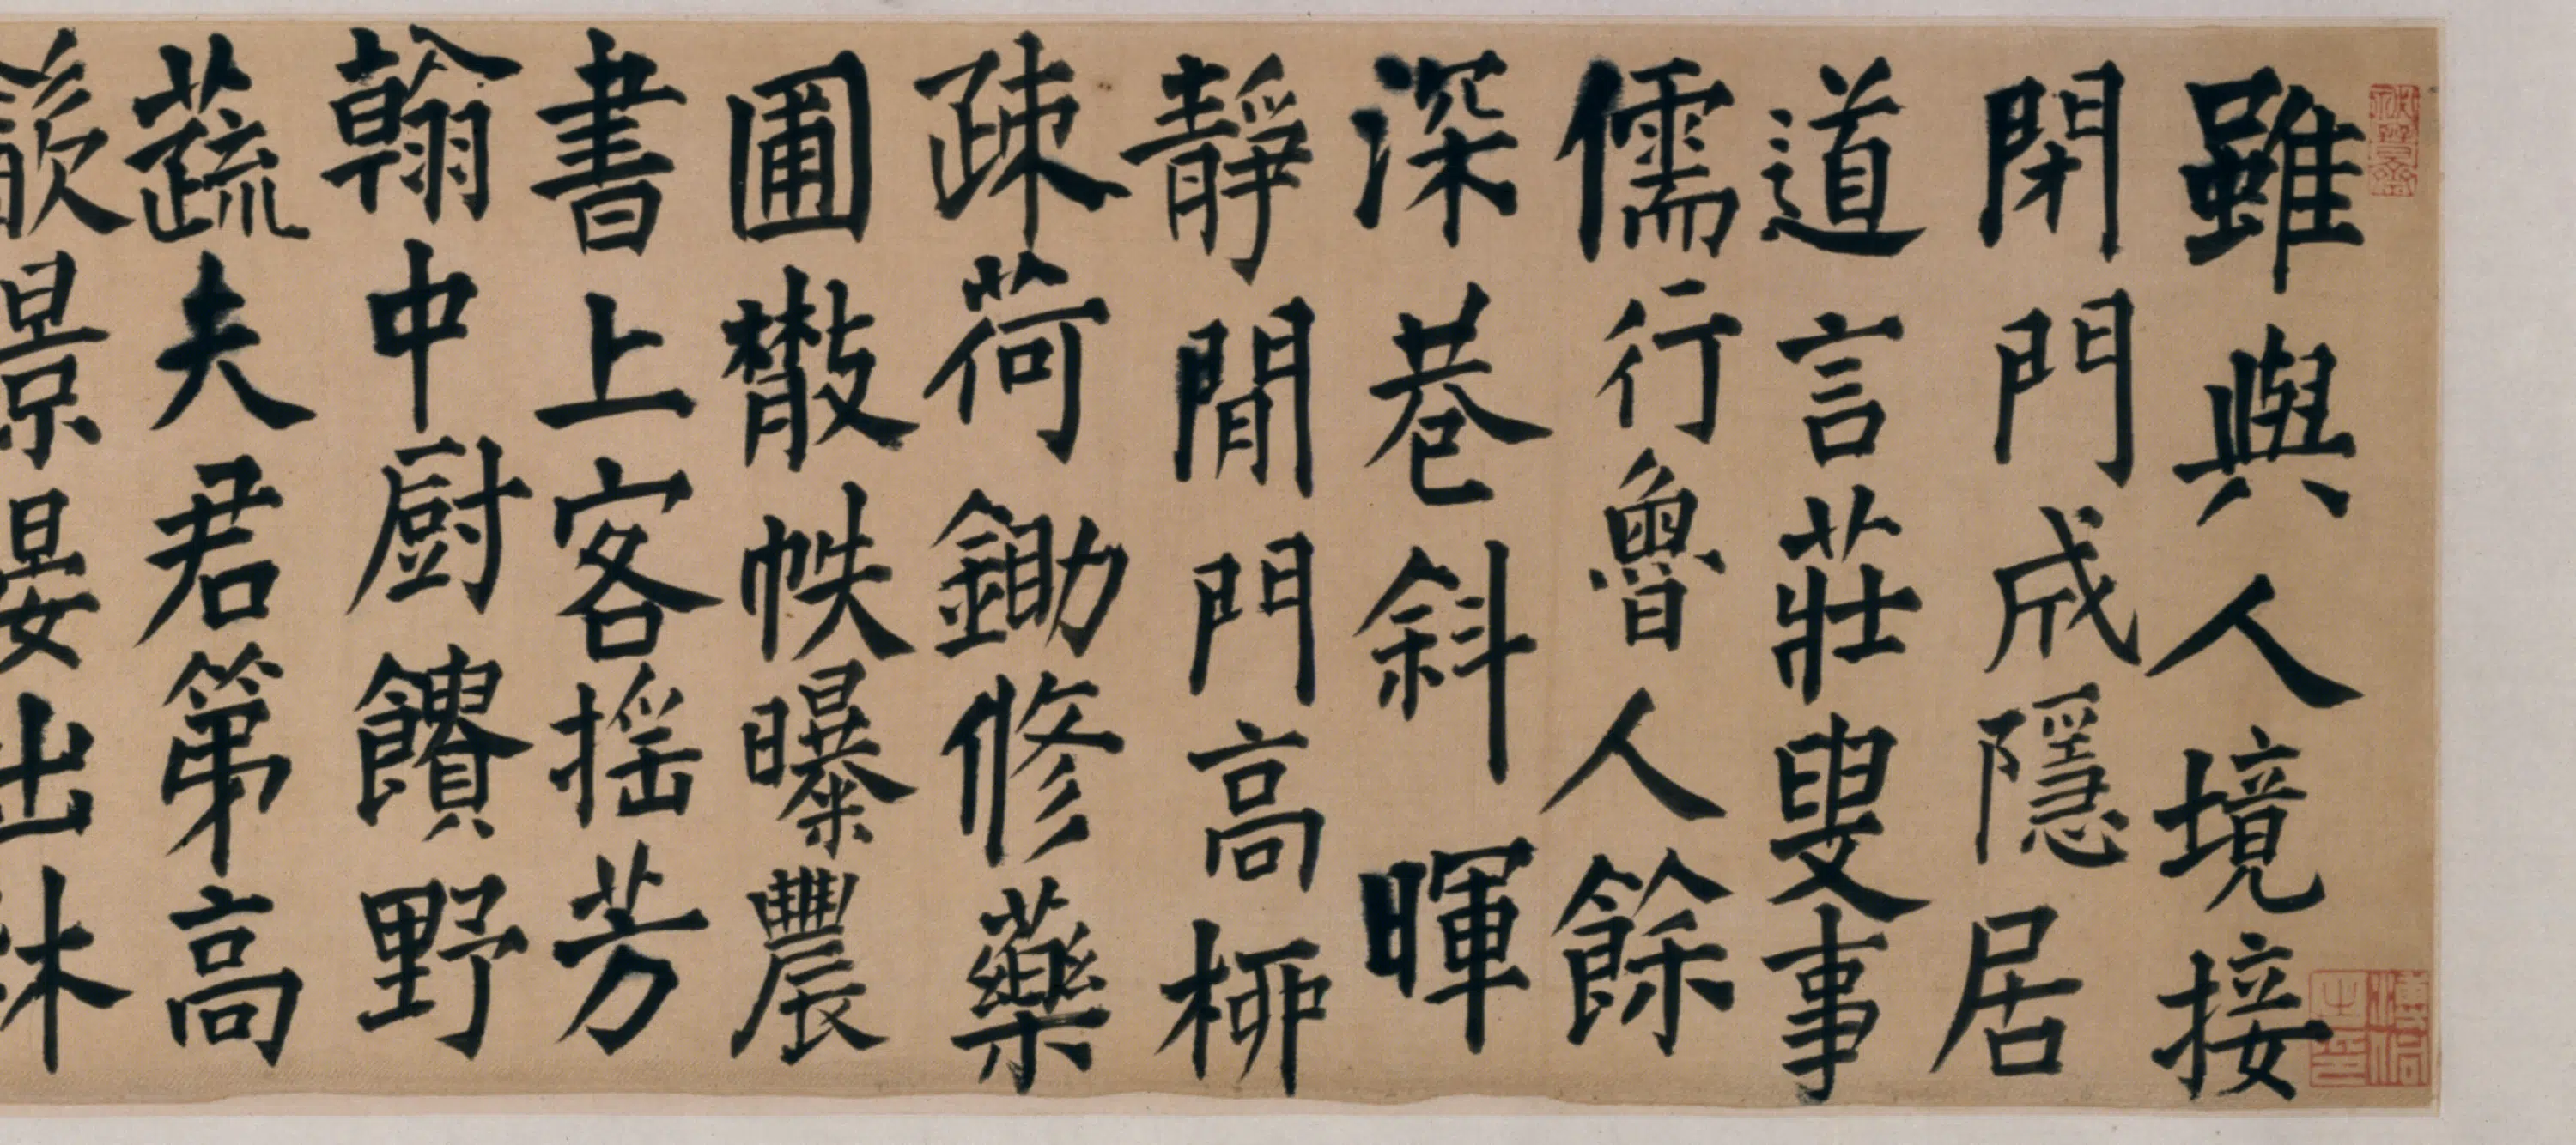 雖與人境接
閉門成隱居
道言莊叟事
儒行魯人餘
深巷斜暉
靜閒門高柳
疎荷鋤修藥
圃散帙曝農
書上客搖芳
翰中厨饋野
蔬夫君第高
飲景晏出林